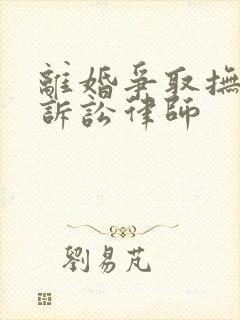 離婚爭取撫
訴訟律師
劉易芃